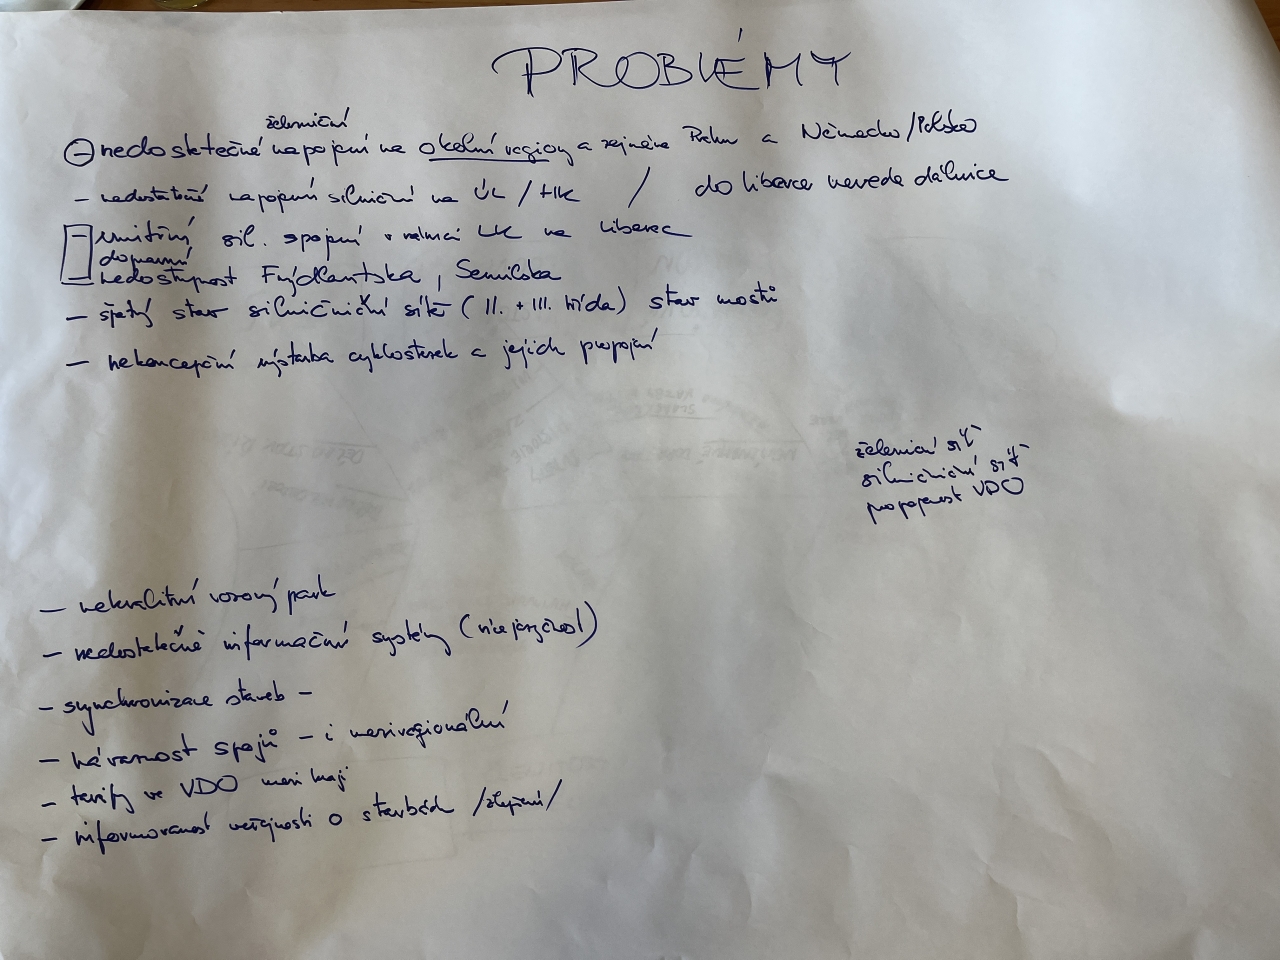 PROBLÉMY
železniční
- nedostatečné napojení na okolní regiony a zejména Prahu a Německo/Polsko
- nedostatečné napojení silniční na ÚL / HK / do Liberce nevede dálnice
- vnitřní sil. spojení v rámci LK na Liberec
dopravní
- nedostupnost Frýdlantska, Semilska
- špatný stav silničniční sítě (II. + III. třída) stav mostů
- nekoncepční výstavba cyklostezek a jejich propojení
železniční síť
silniční síť
propojenost VDO
- nekvalitní vozový park
- nedostatečné informační systémy (vícejazyčnost)
- synchronizace staveb -
- návaznost spojů - i meziregionální
- tarify ve VDO mezi kraji
- informovanost veřejnosti o stavbách /zlepšení/